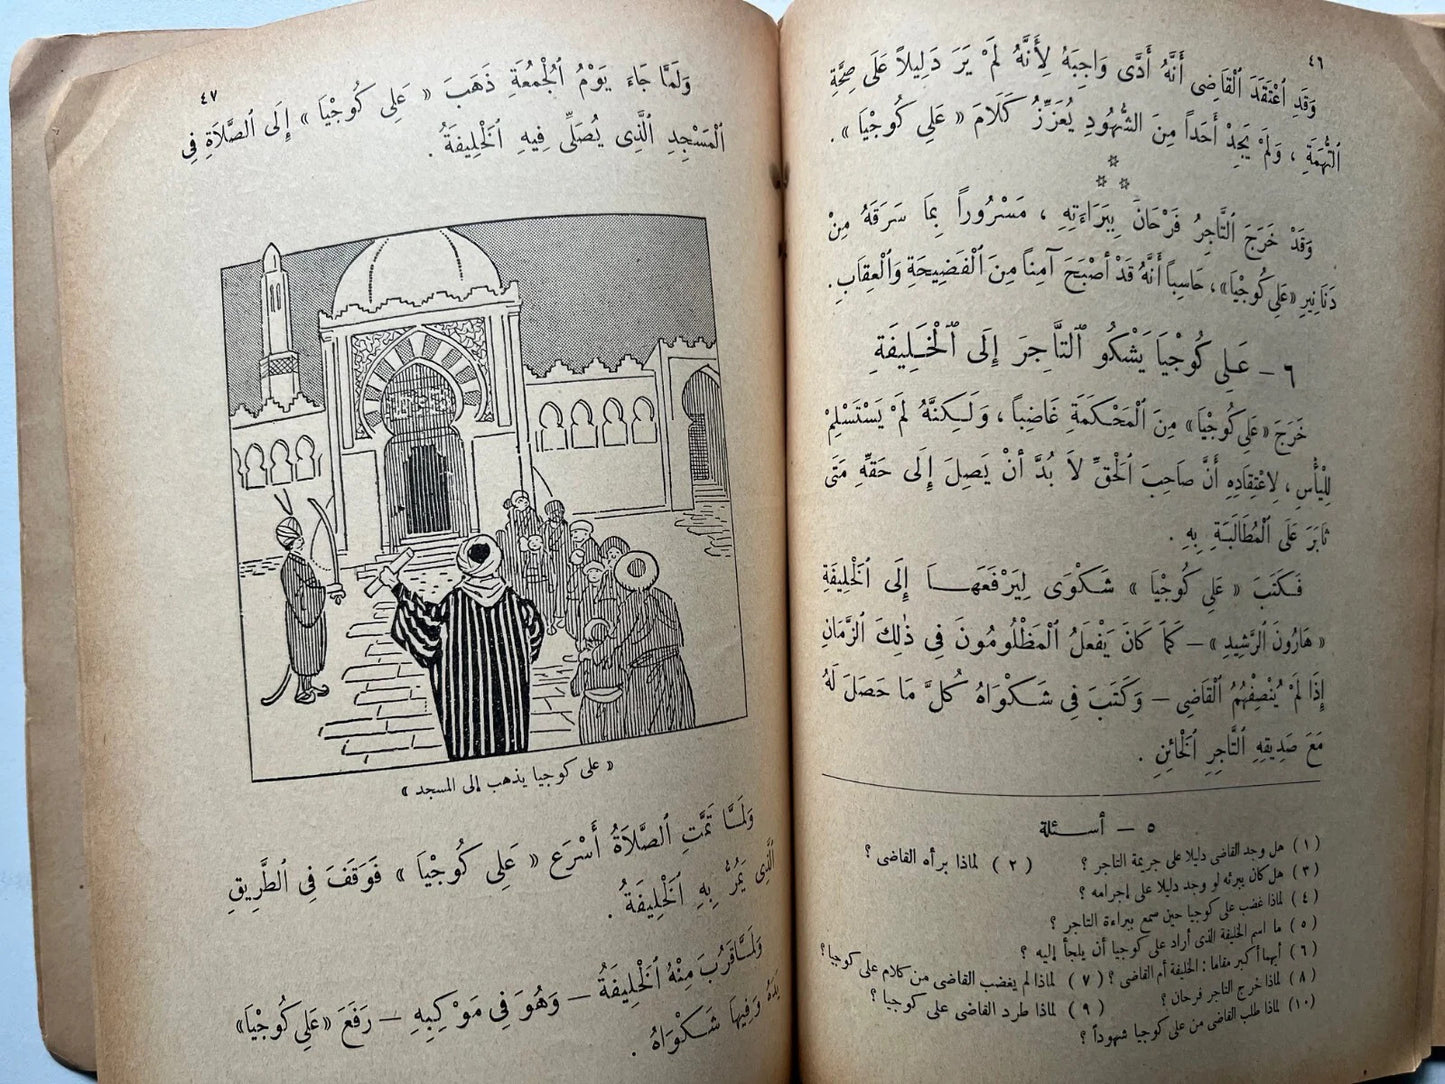 ٤٦
وَقَدِ ٱعْتَقَدَ ٱلْقَاضِى أَنَّهُ أَدَّى وَاجِبَهُ لِأَنَّهُ لَمْ يَرَ دَلِيلاً عَلَى صِحَّةِ
ٱلتُّهَمَةِ ، وَلَمْ يَجِدْ أَحَداً مِنَ الشُّهُودِ يُعَزِّزُ كَلَامَ « عَلِى كُوجْيَا » .
وَقَدْ خَرَجَ ٱلتَّاجِرُ فَرْحَانَ بِبَرَاءَتِهِ ، مَسْرُوراً بِمَا سَرَقَهُ مِنْ
دَنَانِيرِ «عَلِى كُوجْيَا» ، حَاسِباً أَنَّهُ قَدْ أَصْبَحَ آمِناً مِنَ ٱلْفَضِيحَةِ وَٱلْعِقَابِ .
٦ – عَلِى كُوجْيَا يَشْكُو ٱلتَّاجِرَ إِلَى ٱلْخَلِيفَةِ
خَرَجَ «عَلِى كُوجْيَا» مِنَ ٱلْمَحْكَمَةِ غَاضِباً ، وَلَكِنَّهُ لَمْ يَسْتَسْلِمْ
لِلْيَأْسِ ، لِاعْتِقَادِهِ أَنَّ صَاحِبَ ٱلْحَقِّ لَا بُدَّ أَنْ يَصِلَ إِلَى حَقِّهِ مَتَى
ثَابَرَ عَلَى ٱلْمُطَالَبَةِ بِهِ .
فَكَتَبَ « عَلِى كُوجْيَا » شَكْوَى لِيَرْفَعَهَا إِلَى ٱلْخَلِيفَةِ
« هَارُونَ ٱلرَّشِيدِ » – كَمَا كَانَ يَفْعَلُ ٱلْمَظْلُومُونَ فِى ذٰلِكَ ٱلزَّمَانِ
إِذَا لَمْ يُنْصِفْهُمُ ٱلْقَاضِى – وَكَتَبَ فِى شَكْوَاهُ كُلَّ مَا حَصَلَ لَهُ
مَعَ صَدِيقِهِ ٱلتَّاجِرِ ٱلْخَائِنِ .
٥ – أسئلة
(١) هل وجد القاضى دليلا على جريمة التاجر ؟ (٢) لماذا برأه القاضى ؟
(٣) هل كان يبرئه لو وجد دليلا على إجرامه ؟
(٤) لماذا غضب على كوجيا حين سمع ببراءة التاجر ؟
(٥) ما اسم الخليفة الذى أراد على كوجيا أن يلجأ إليه ؟
(٦) أيهما أكبر مقاما : الخليفة أم القاضى ؟ (٧) لماذا لم يغضب القاضى من كلام على كوجيا ؟
(٨) لماذا خرج التاجر فرحان ؟ (٩) لماذا طرد القاضى على كوجيا ؟
(١٠) لماذا طلب القاضى من على كوجيا شهوداً ؟
٤٧
وَلَمَّا جَاءَ يَوْمُ ٱلْجُمُعَةِ ذَهَبَ « عَلِى كُوجْيَا » إِلَى الصَّلَاةِ فِى
ٱلْمَسْجِدِ ٱلَّذِى يُصَلِّى فِيهِ ٱلْخَلِيفَةُ .
« على كوجيا يذهب إلى المسجد »
وَلَمَّا تَمَّتِ ٱلصَّلَاةُ أَسْرَعَ « عَلِى كُوجْيَا » فَوَقَفَ فِى ٱلطَّرِيقِ
ٱلَّذِى يَمُرُّ بِهِ ٱلْخَلِيفَةُ .
وَلَمَّا قَرُبَ مِنْهُ ٱلْخَلِيفَةُ – وَهُوَ فِى مَوْكِبِهِ – رَفَعَ «عَلِى كُوجْيَا»
يَدَهُ وَفِيهَا شَكْوَاهُ .